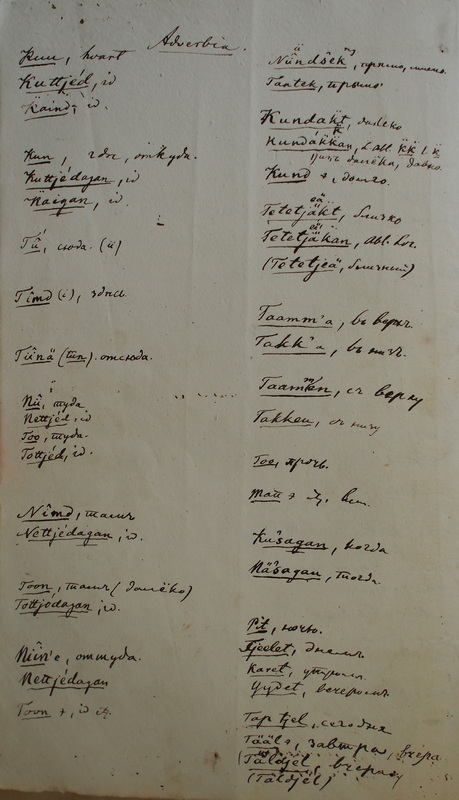 Adverbia.
Kuu, hvart
Kuttjéd, id
Kaind, id.
Kun, гдѣ, откуда.
Kuttjédagan, id
Kaigan, id.
Tú, сюда. (ü)
Tímd (i), здѣсь.
Tünä (tün). отсюда.
Nü, туда
Nettjéd, id
Too, туда.
Tottjéd, id.
Nímd, тамъ
Nettjédagan, id.
Toon, тамъ (далёко)
Tottjódagan, id.
Nün'e, оттуда.
Nettjédagan
Toon
Nündsek, прямо,
Taatek, прямо
Kundakt, далеко
Kundákkan, далёка, давно.
Kund, долго.
Tetetjäkt, близко
Tetetjäkan, abl. loc.
(Tetetjeä, близкий)
Taamm'a, въ верхъ.
Takk'a, въ низъ.
Taamten, съ верху
Takken, съ низу
Toe, прочь.
Matt
Kúsagan, когда
Násagan, тогда
Pit, ночью.
Tjeelet, днемъ.
Karet, утромъ.
Üüdet, вечеромъ.
Tap tjel, сегодня
Tääl, завтра, вчера
(Täldjel, вчера
(Taldjel)